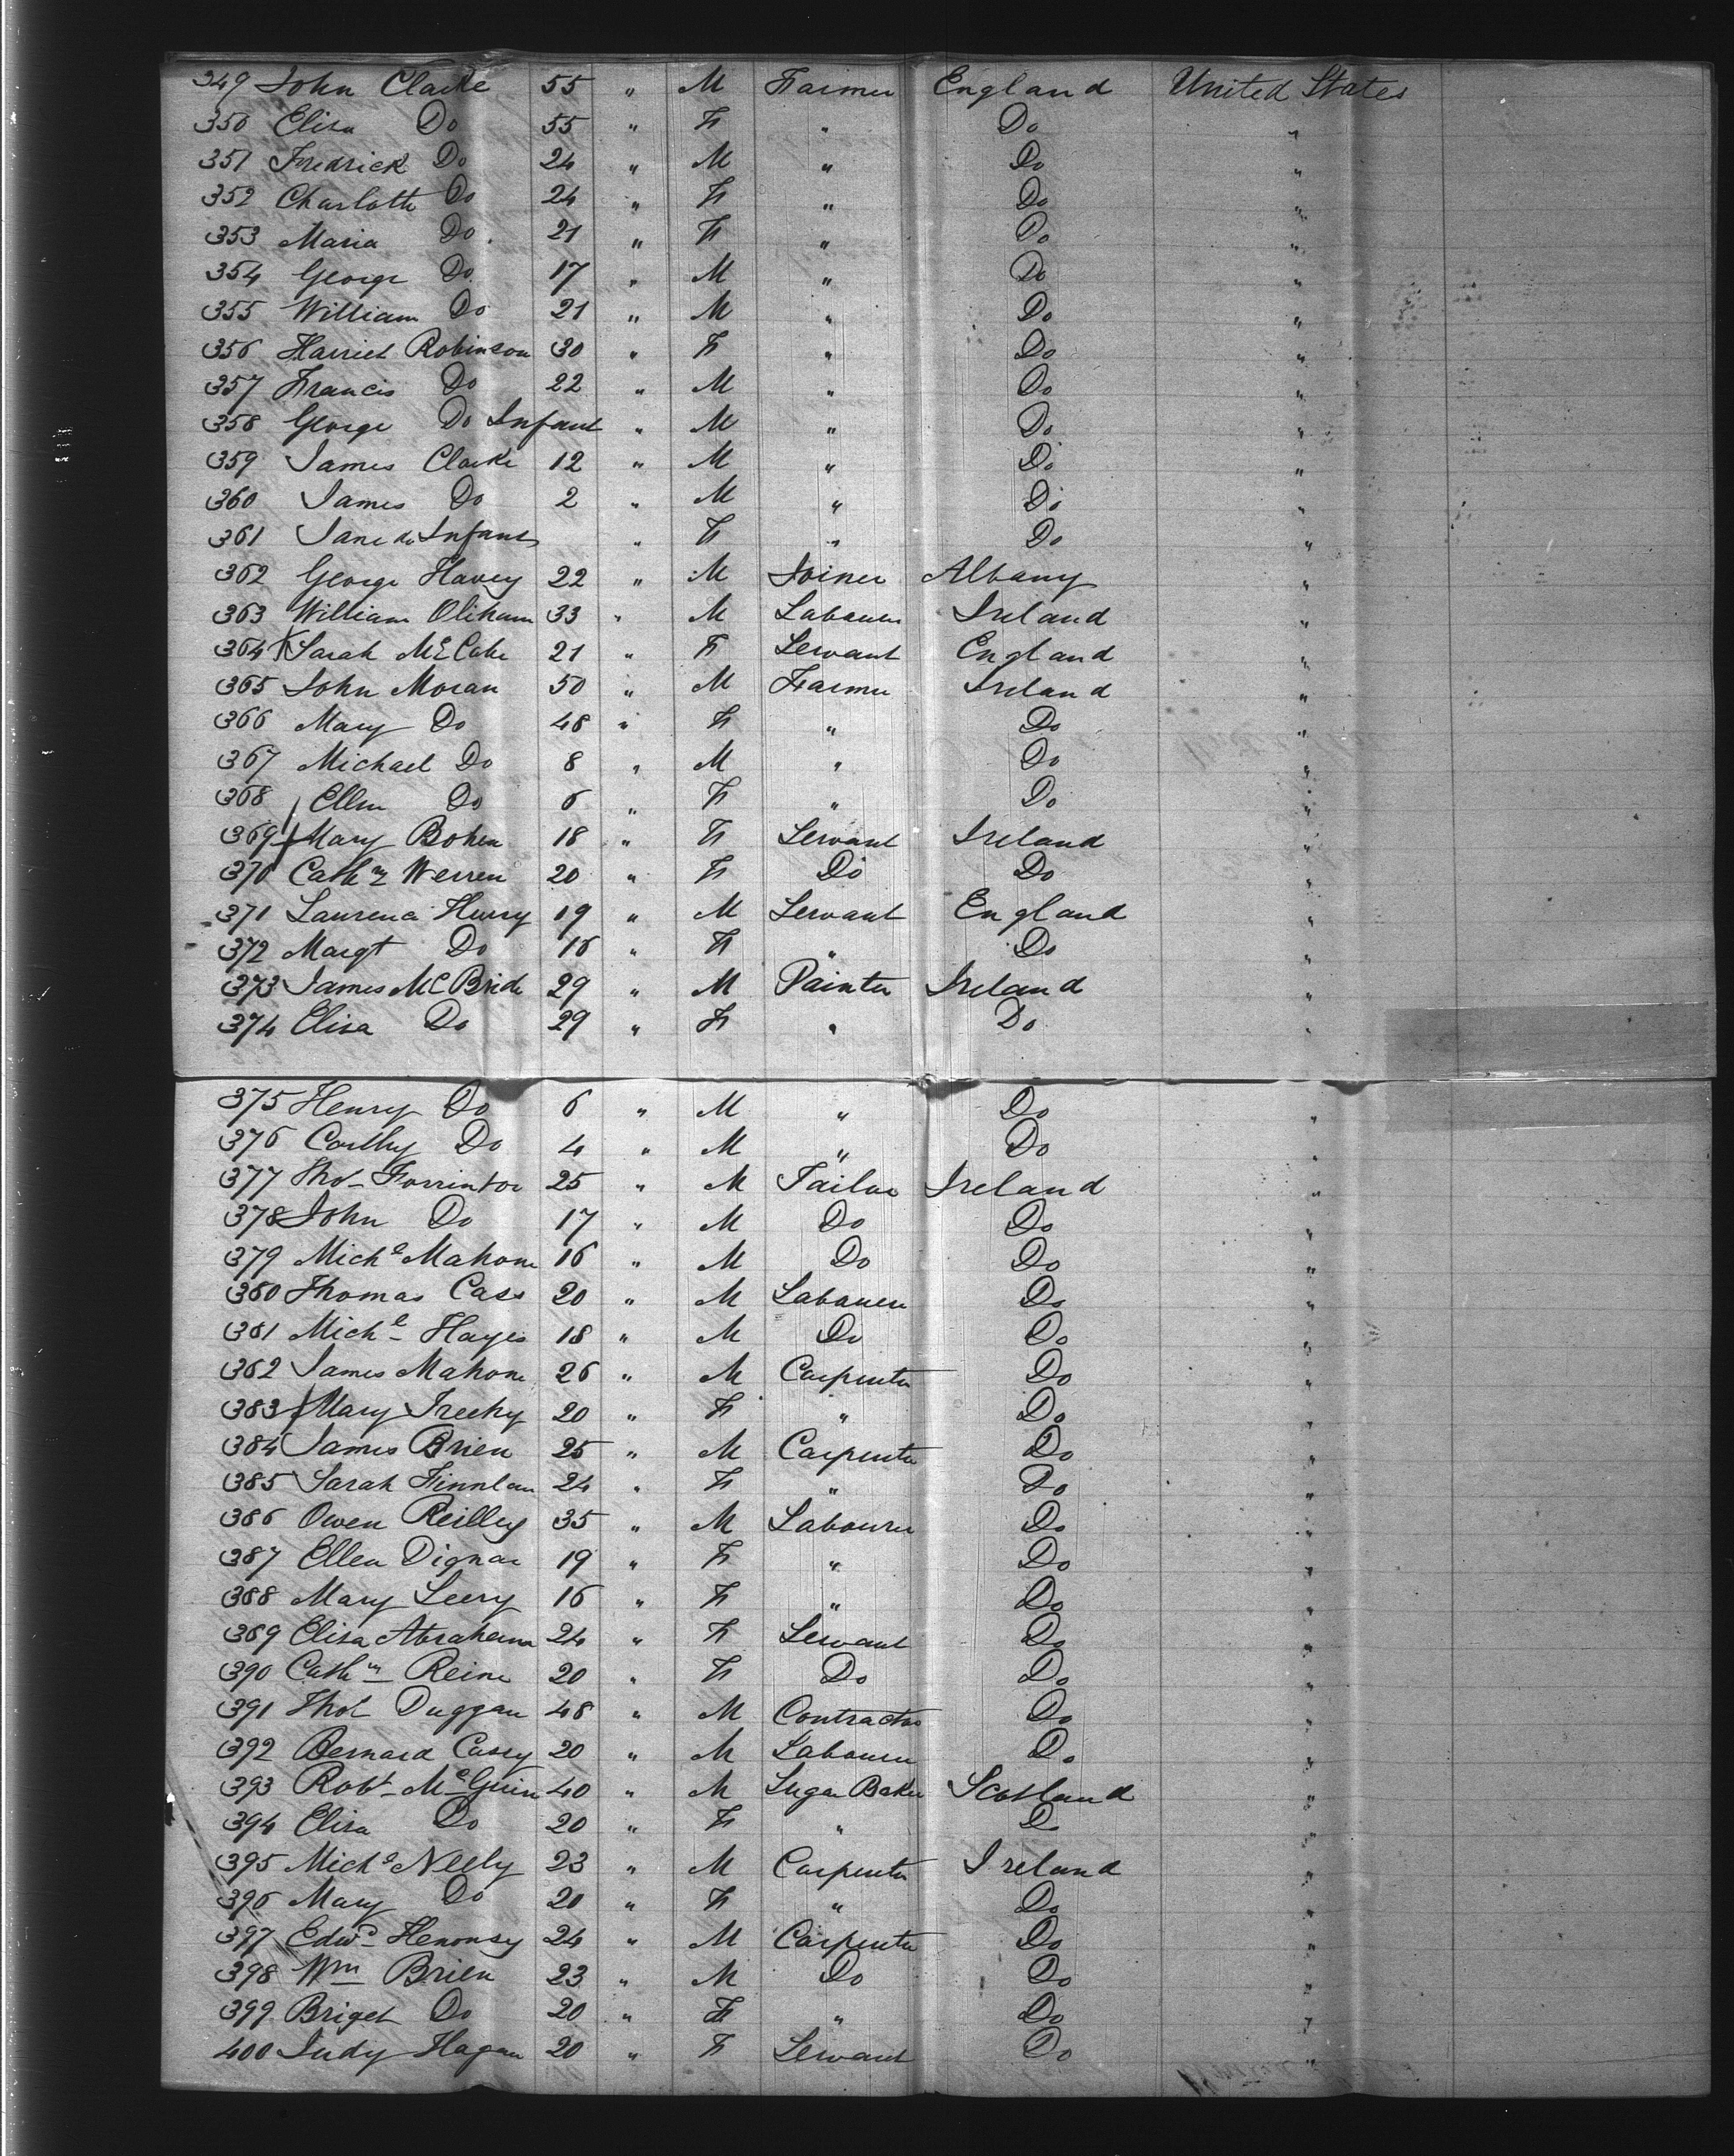 349 John Clarke 55 " M Farmer England United States
350 Elisa Do 55 " F " Do "
351 Fredrick Do 24 " M " Do "
352 Charlotte Do 24 " F " Do "
353 Maria Do. 21 " F " Do "
354 George Do 17 " M " Do "
355 William Do 21 " M " Do "
356 Harriet Robinson 30 " F " Do "
357 Francis Do 22 " M " Do "
358 George Do Infant " M " Do "
359 James Clarke 12 " M " Do "
360 James Do 2 " M " Do "
361 Jane do Infant " F " Do "
362 George Havey 22 " M Joiner Albany "
363 William 33 " M Labourer Ireland "
364 Sarah McCabe 21 " F Servant England "
365 John Moran 50 " M Farmer Ireland "
366 Mary Do 48 " F " Do "
367 Michael Do 8 " M " Do "
368 Ellen Do 6 " F " Do "
369 Mary Bohen 18 " F Servant Ireland "
370 Cathn Werren 20 " F Do Do "
371 Laurence 19 " M Servant England "
372 Margt Do 16 " F " Do "
373 James McBride 29 " M Painter Ireland "
374 Elisa Do 29 " F " Do "
375 Henry Do 6 " M " Do "
376 Do 4 " M " Do "
377 Thos 25 " M Tailor Ireland "
378 John Do 17 " M Do Do "
379 Michl Mahone 16 " M Do Do "
380 Thomas Cass 20 " M Labourer Do "
381 Michl Hayes 18 " M Do Do "
382 James Mahone 26 " M Carpenter Do "
383 Mary 20 " F " Do "
384 James Brien 25 " M Carpenter Do "
385 Sarah Finnlan 24 " F " Do "
386 Owen Reilley 35 " M Labourer Do "
387 Ellen Dignan 19 " F " Do "
388 Mary Leery 16 " F " Do "
389 Elisa Abraham 24 " F Servant Do "
390 Cathn Reine 20 " F Do Do "
391 Thos Duggan 48 " M Contractor Do "
392 Bernard Casey 20 " M Labourer Do "
393 Robt McGuin 40 " M Sugar Baker Scotland "
394 Elisa Do 20 " F " Do "
395 Michl Neely 23 " M Carpenter Ireland "
396 Mary Do 20 " F " Do "
397 Edwd 24 " M Carpenter Do "
398 Wm Brien 23 " M Do Do "
399 Briget Do 20 " F " Do "
400 Judy Hagan 20 " F Servant Do "